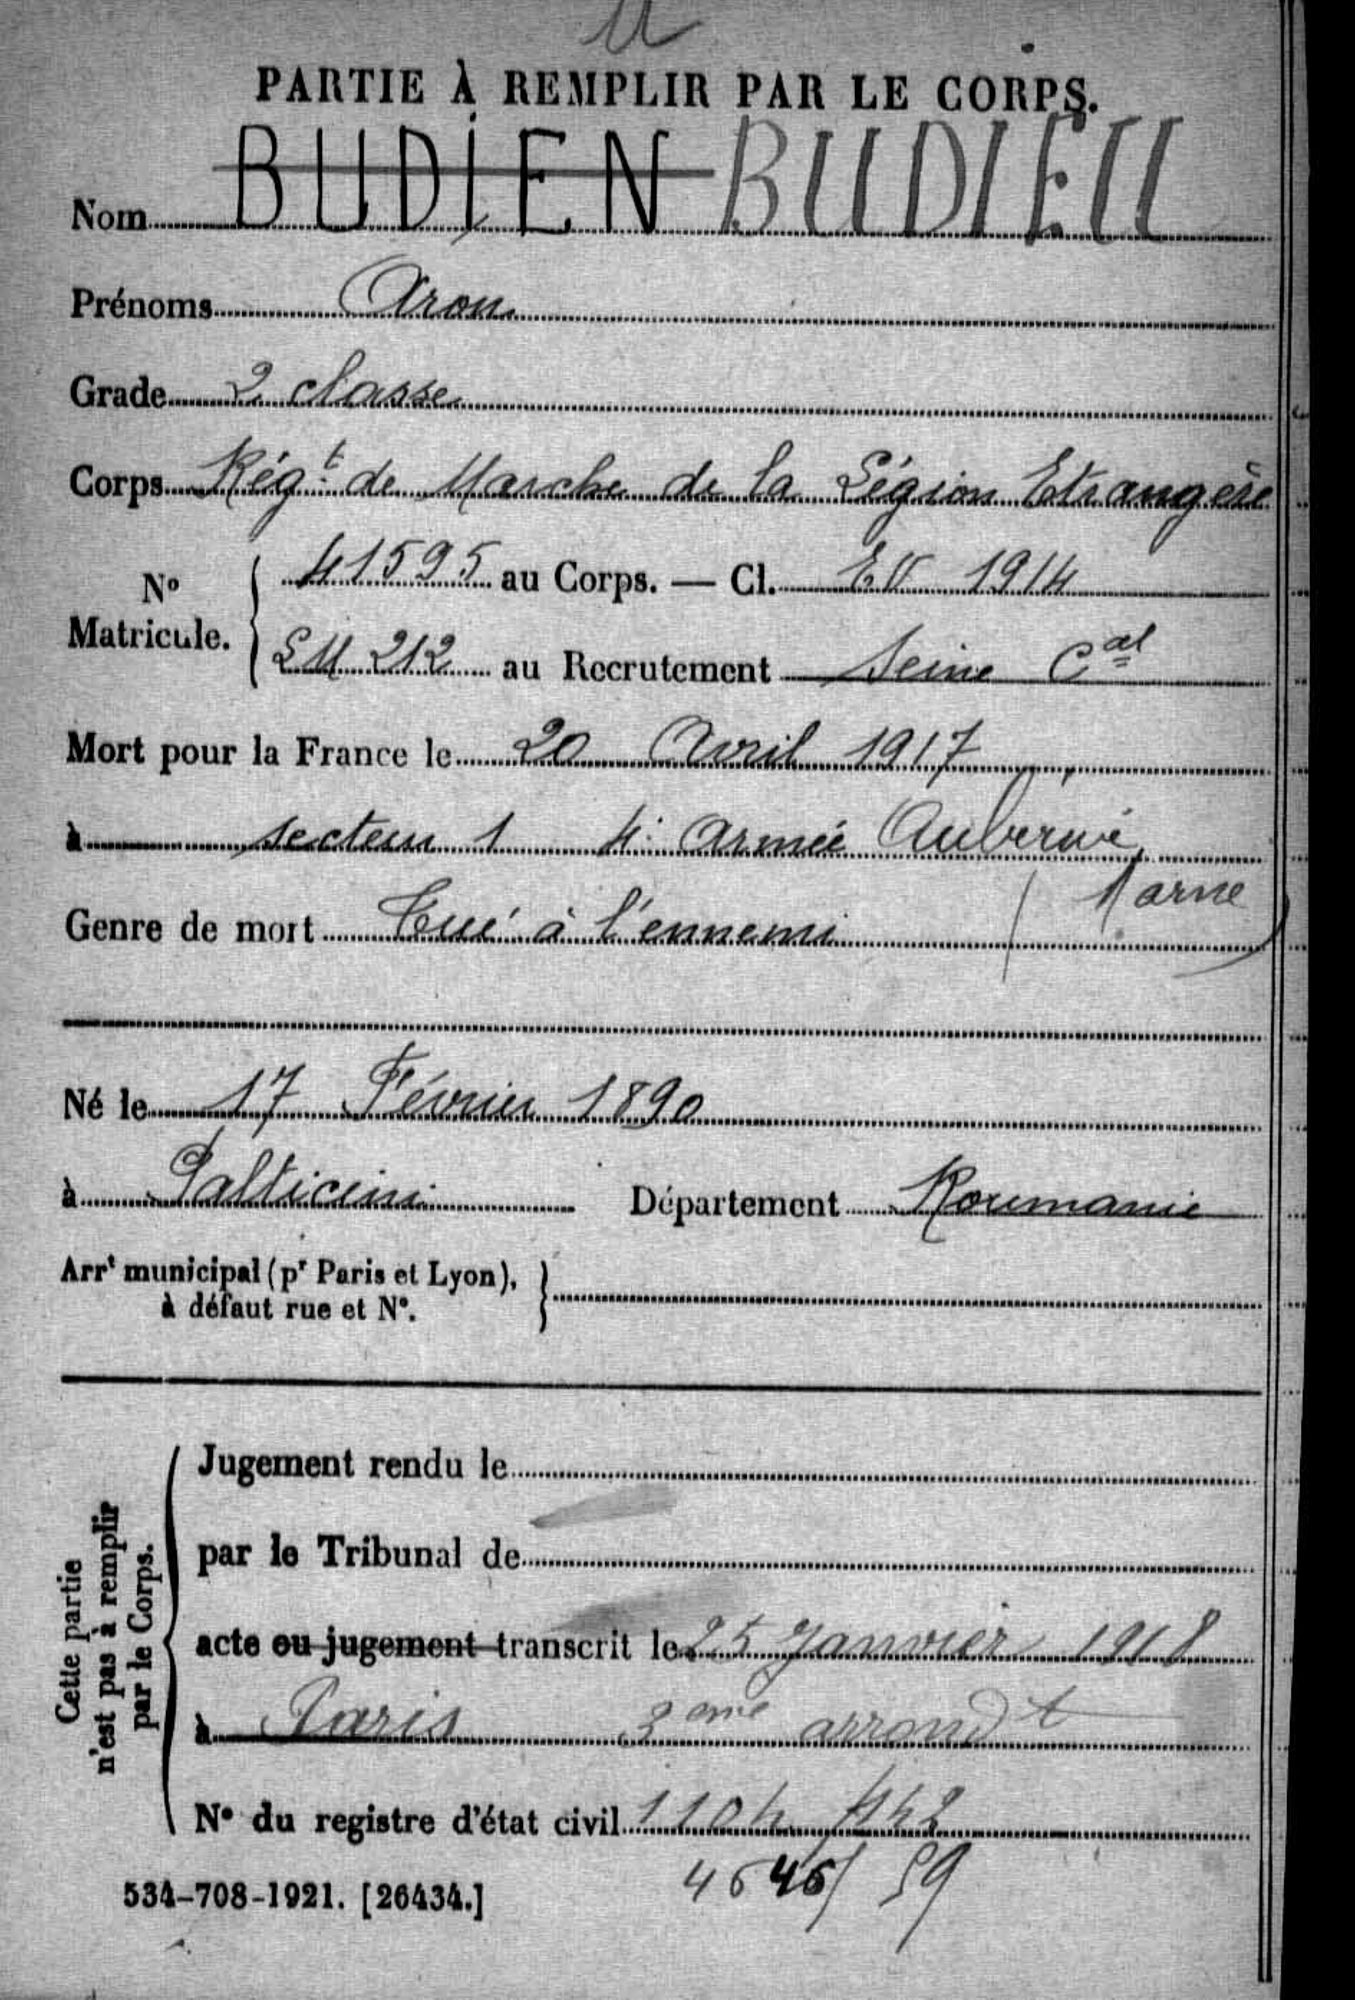 U
PARTIE À REMPLIR PAR LE CORPS.
Nom BUDIEN BUDIEU
Prénoms Aron
Grade 2 classe
Corps Régt de Marche de la Légion Etrangère
No Matricule. 41595 au Corps. — Cl. EV 1914
LM 212 au Recrutement Seine Cal
Mort pour la France le 20 Avril 1917
à secteur 1 4e Armée Auberive
Marne
Genre de mort Tué à l'ennemi
Né le 17 Février 1890
à Palticini Département Roumanie
Arrt municipal (pr Paris et Lyon),
à défaut rue et No.
Cette partie
n'est pas à remplir
par le Corps.
Jugement rendu le
par le Tribunal de
acte ou jugement transcrit le 25 Janvier 1918
à Paris 3eme arrondt
No du registre d'état civil
534-708-1921. [26434.]